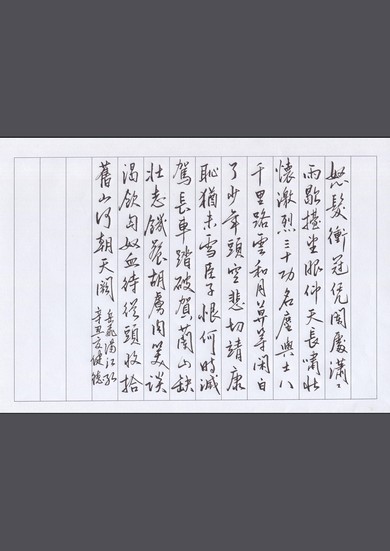 怒髮衝冠凭闌處瀟瀟
雨歇擡望眼仰天長嘯壯
懷激烈三十功名塵與土八
千里路雲和月莫等閒白
了少年頭空悲切靖康
恥猶未雪臣子恨何時滅
駕長車踏破賀蘭山缺
壯志饑餐胡虜肉笑談
渴飲匈奴血待從頭收拾
舊山河朝天闕
岳飛滿江紅
辛丑